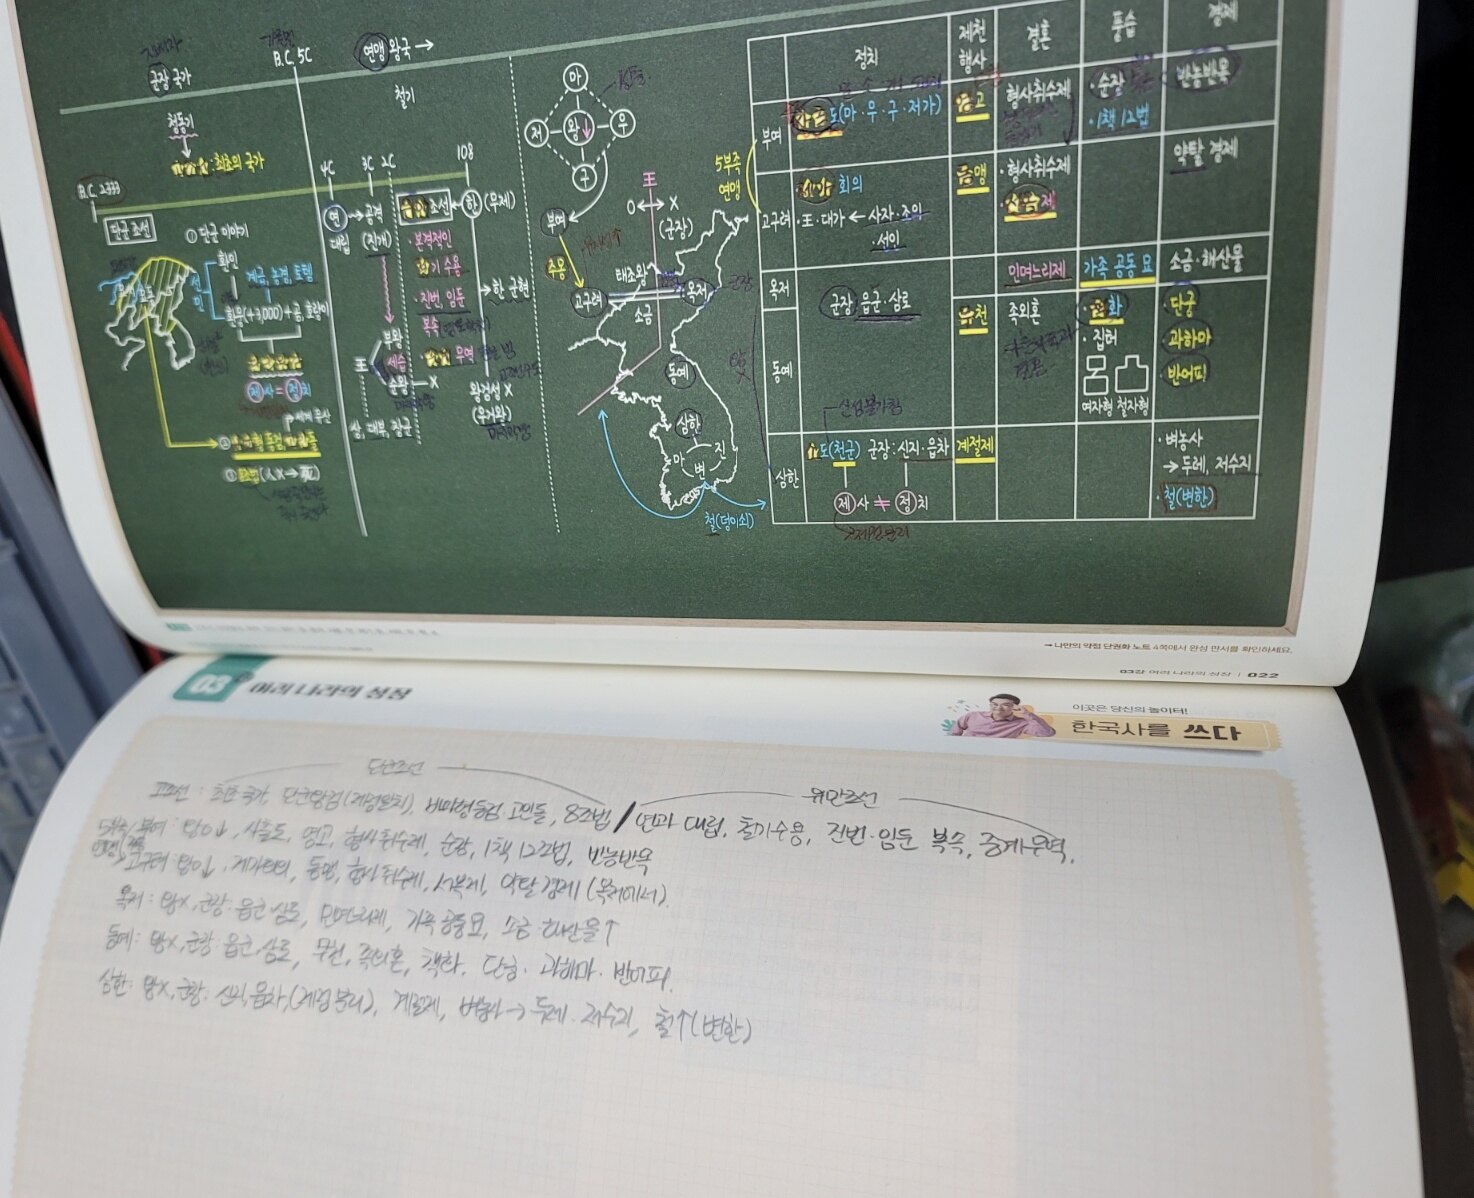 군장 국가
B.C. 5C
연맹 왕국 →
철기
청동기
:최초의 국가
B.C. 2333
단군 조선
① 단군 이야기
환인
계급, 농경, 토템
환웅(+3,000)+곰, 호랑이
제사=정치
4C 3C 2C 108
연 → 공격
대립 (진개)
조선 ← 한 (무제)
·본격적인
기 수용
·진번·임둔
복속
무역
한 군현
王
부왕
세습
준왕 — X
왕검성 X
(우거왕)
상, 대부, 장군
마
저 왕 우
구
부여
주몽
고구려
王
O ↔ X
(군장)
태조왕
옥저
소금
동예
삼한
마 진
변
철(덩이쇠)
5부족
연맹
정치 제천 행사 결혼 풍습 경제
부여 도(마·우·구·저가) 고 형사취수제 ·순장 반농반목
·1책 12법
고구려 회의 맹 형사취수제 약탈 경제
·王·대가 ← 사자·조의 제
·선인
옥저 군장 읍군·삼로 민며느리제 가족 공동 묘 소금·해산물
동예 천 족외혼 화 ·단궁
·집터 ·과하마
여자형 철자형 ·반어피
삼한 도(천군) 군장:신지·읍차 계절제 ·벼농사
제사≠정치 → 두레, 저수지
·철(변한)
→ 나만의 약점 단권화 노트 4쪽에서 완성 판서를 확인하세요.
03강 여러 나라의 성장 | 022
03 여러 나라의 성장
이곳은 당신의 놀이터!
한국사를 쓰다
단군조선 위만조선
고조선 : 최초 국가, 단군왕검(제정일치), 비파형동검 고인돌, 8조법 / 연과 대립, 철기수용, 진번·임둔 복속, 중계무역.
부여 : 왕O↓, 사출도, 영고, 형사취수제, 순장, 1책 12조법, 반농반목
고구려 왕O↓, 제가회의, 동맹, 형사취수제, 서옥제, 약탈경제 (옥저에서)
옥저 : 왕X, 군장:읍군 삼로, 민며느리제, 가족 공동묘, 소금·해산물↑
동예 : 왕X, 군장:읍군, 삼로, 무천, 족외혼, 책화. 단궁·과하마·반어피.
삼한 : 왕X, 군장: 신지, 읍차, (제정분리), 계절제, 벼농사→두레·저수지, 철↑(변한)